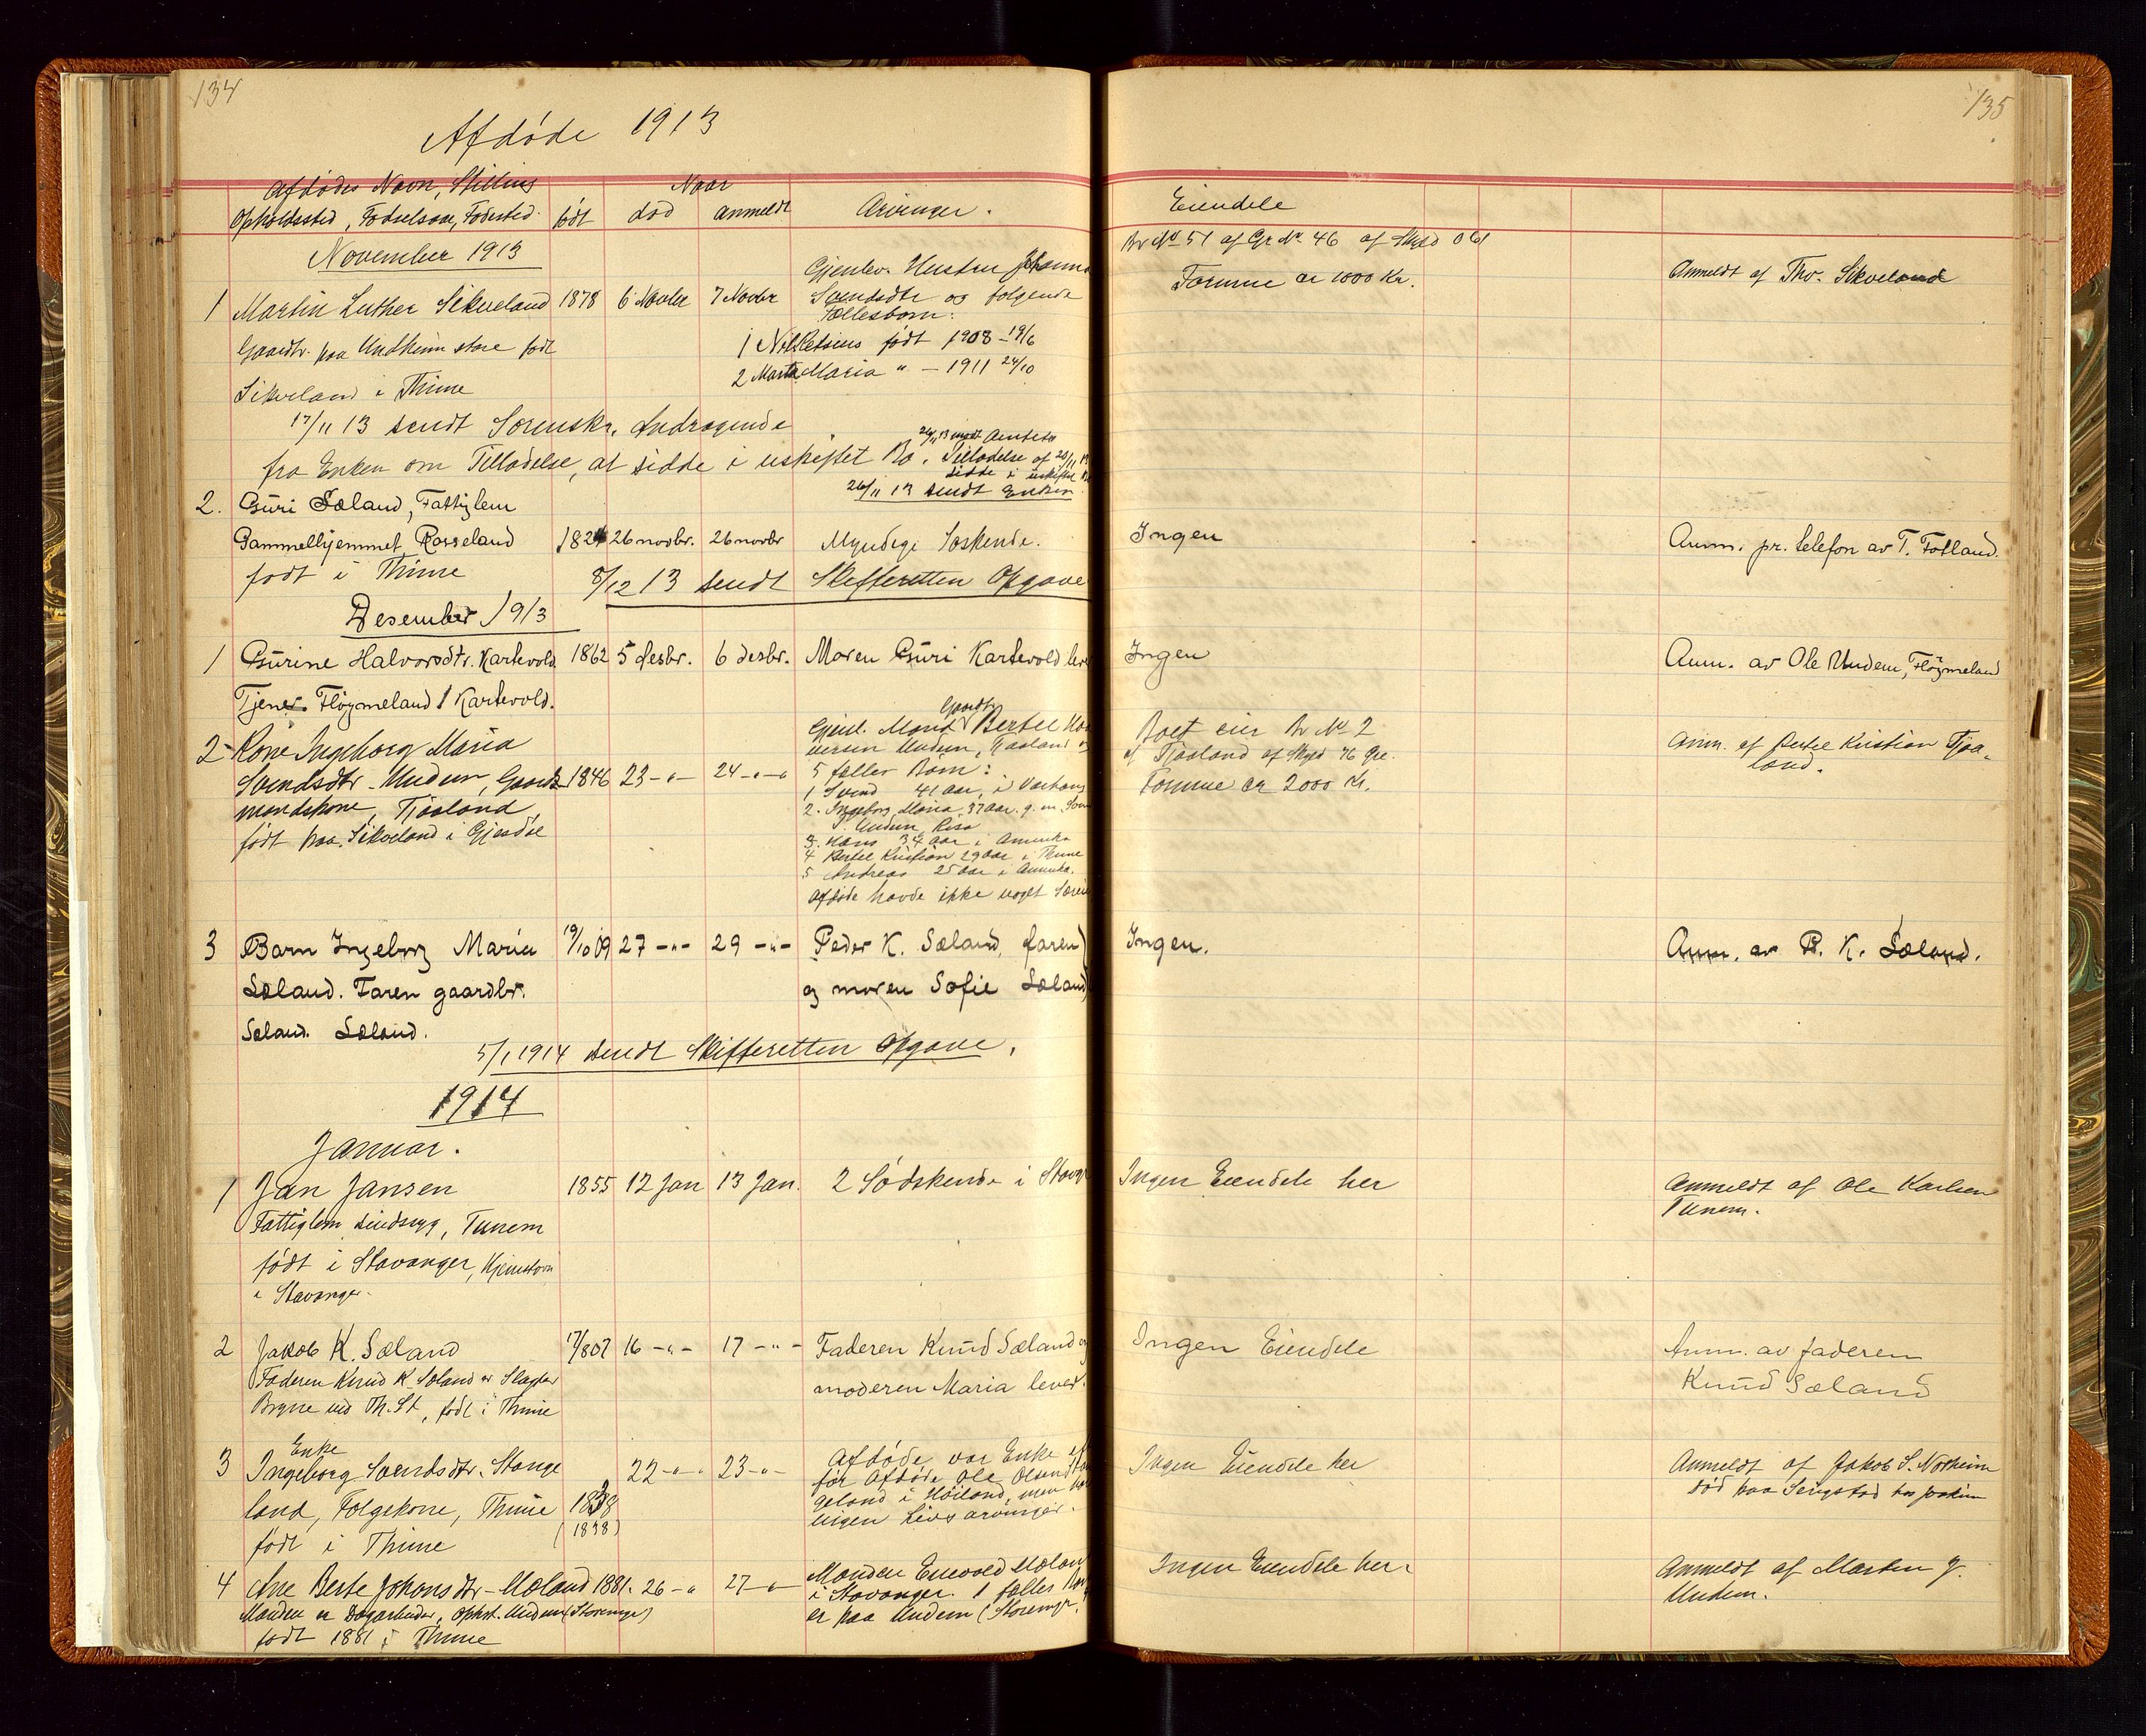 134
Afdøde 1913
Afdødes Navn, Stilling
Opholdssted, Fødselsaar, Fødested.
født
Naar
død
anmeldt
Arvinger.
November 1913
1 Martin Luther Sikveland 1878 6 Novbr 7 Novbr
Gaardbr. paa Undheim store født
Sikveland i Thime
Gjenlev. Hustru
Svendsdtr og følgende
Fællesbørn:
1 født 1908 – 19/6
2 Marta Maria " – 1911 24/10
17/11 13 sendt Sorenskr. Andragende
fra Enken om Tilladelse, at sidde i uskiftet Bo.
Tilladelse af
sidde i uskiftet
26/11 13 sendt Enken
2. Guri Sæland, Fattiglem
Gammelhjemmet, Rosseland 26 novbr. 26 novbr Myndige Søskende.
født i Thime
8/12 13 sendt Skifteretten Opgave
Desember 1913
1 Gurine Halvorsdtr. Kartevold 1862 5 desbr. 6 desbr. Moren Guri Kartevold
Tjener. Fløymeland / Kartevold.
2 Kone Ingeborg Maria
Svendsdtr. Undem, Gaard- 1846 23 –"– 24 –"–
mandskone, Tjaaland
født paa Sikveland i Gjesdal
Gaardbr.
Gjenl. Mand Bertel
Undem, Tjaaland
5 fælles Børn:
1 Svend 41 Aar, i Varhaug
2. Ingeborg Maria 37 Aar. g. m.
Undem
3. Hans 34 Aar i Amerika
4 Bertel Kristian 29 Aar i Thime
5 Andreas 25 Aar i Amerika.
Afdøde havde ikke noget
3 Barn Ingeborg Maria 19/10 09 27 –"– 29 –"– Peder K. Sæland, faren
Sæland. Faren gaardbr. og moren Sofie Sæland
Sæland. Sæland.
5/1 1914 sendt Skifteretten Opgave.
1914
Januar.
1 Jan Jansen 1855 12 Jan 13 Jan. 2 Sødskende i
Fattiglem sindssyg, Tunem
født i Stavanger, Hjemstavn
i Stavanger.
2 Jakob K. Sæland 17/8 07 16 –"– 17 –"– Faderen Knud Sæland og
Faderen Knud K. Sæland er Slagter moderen Maria lever.
Bryne ved Th. St, født i Thime
Enke
3 Ingeborg Svendsdtr. Stange 22 –"– 23 –"–
land, Folgekone, Thime
(1838)
født i Thime
Afdøde var Enke
før Afdøde Ole Olsen
geland i Høiland, men
ingen Livsarvinger.
4 Ane Berte Johansdtr. Mæland 1881. 26 –" 27 –"–
Manden er Dagarbeider, Undem (Storemyr)
født 1881 i Thime
Manden Enevold
i Stavanger. 1 fælles
er paa Undem (Storemyr.
135
Eiendele
Br No 51 af Gr No 46 af Skyld 061
Formue ca 1000 Kr.
Anmeldt af Thv. Sikveland
Ingen
Anm. pr. telefon av T. Fotland.
Ingen
Anm. av Ole Undem, Fløymeland
Boet eier Br No 2
af Tjaaland af Skyld 76 Øre.
Formue ca 2000 Kr.
Anm. af Bertel Kristian Tjaa-
land.
Ingen.
Anm. av P. K. Sæland.
Ingen Eiendele her
Anmeldt af Ole Karlsen
Tunem.
Ingen Eiendele
Anm. av faderen
Knud Sæland
Ingen Eiendele her
Anmeldt af Jakob S. Norheim
død paa
Ingen Eiendele her
Anmeldt af Martin J.
Undem.